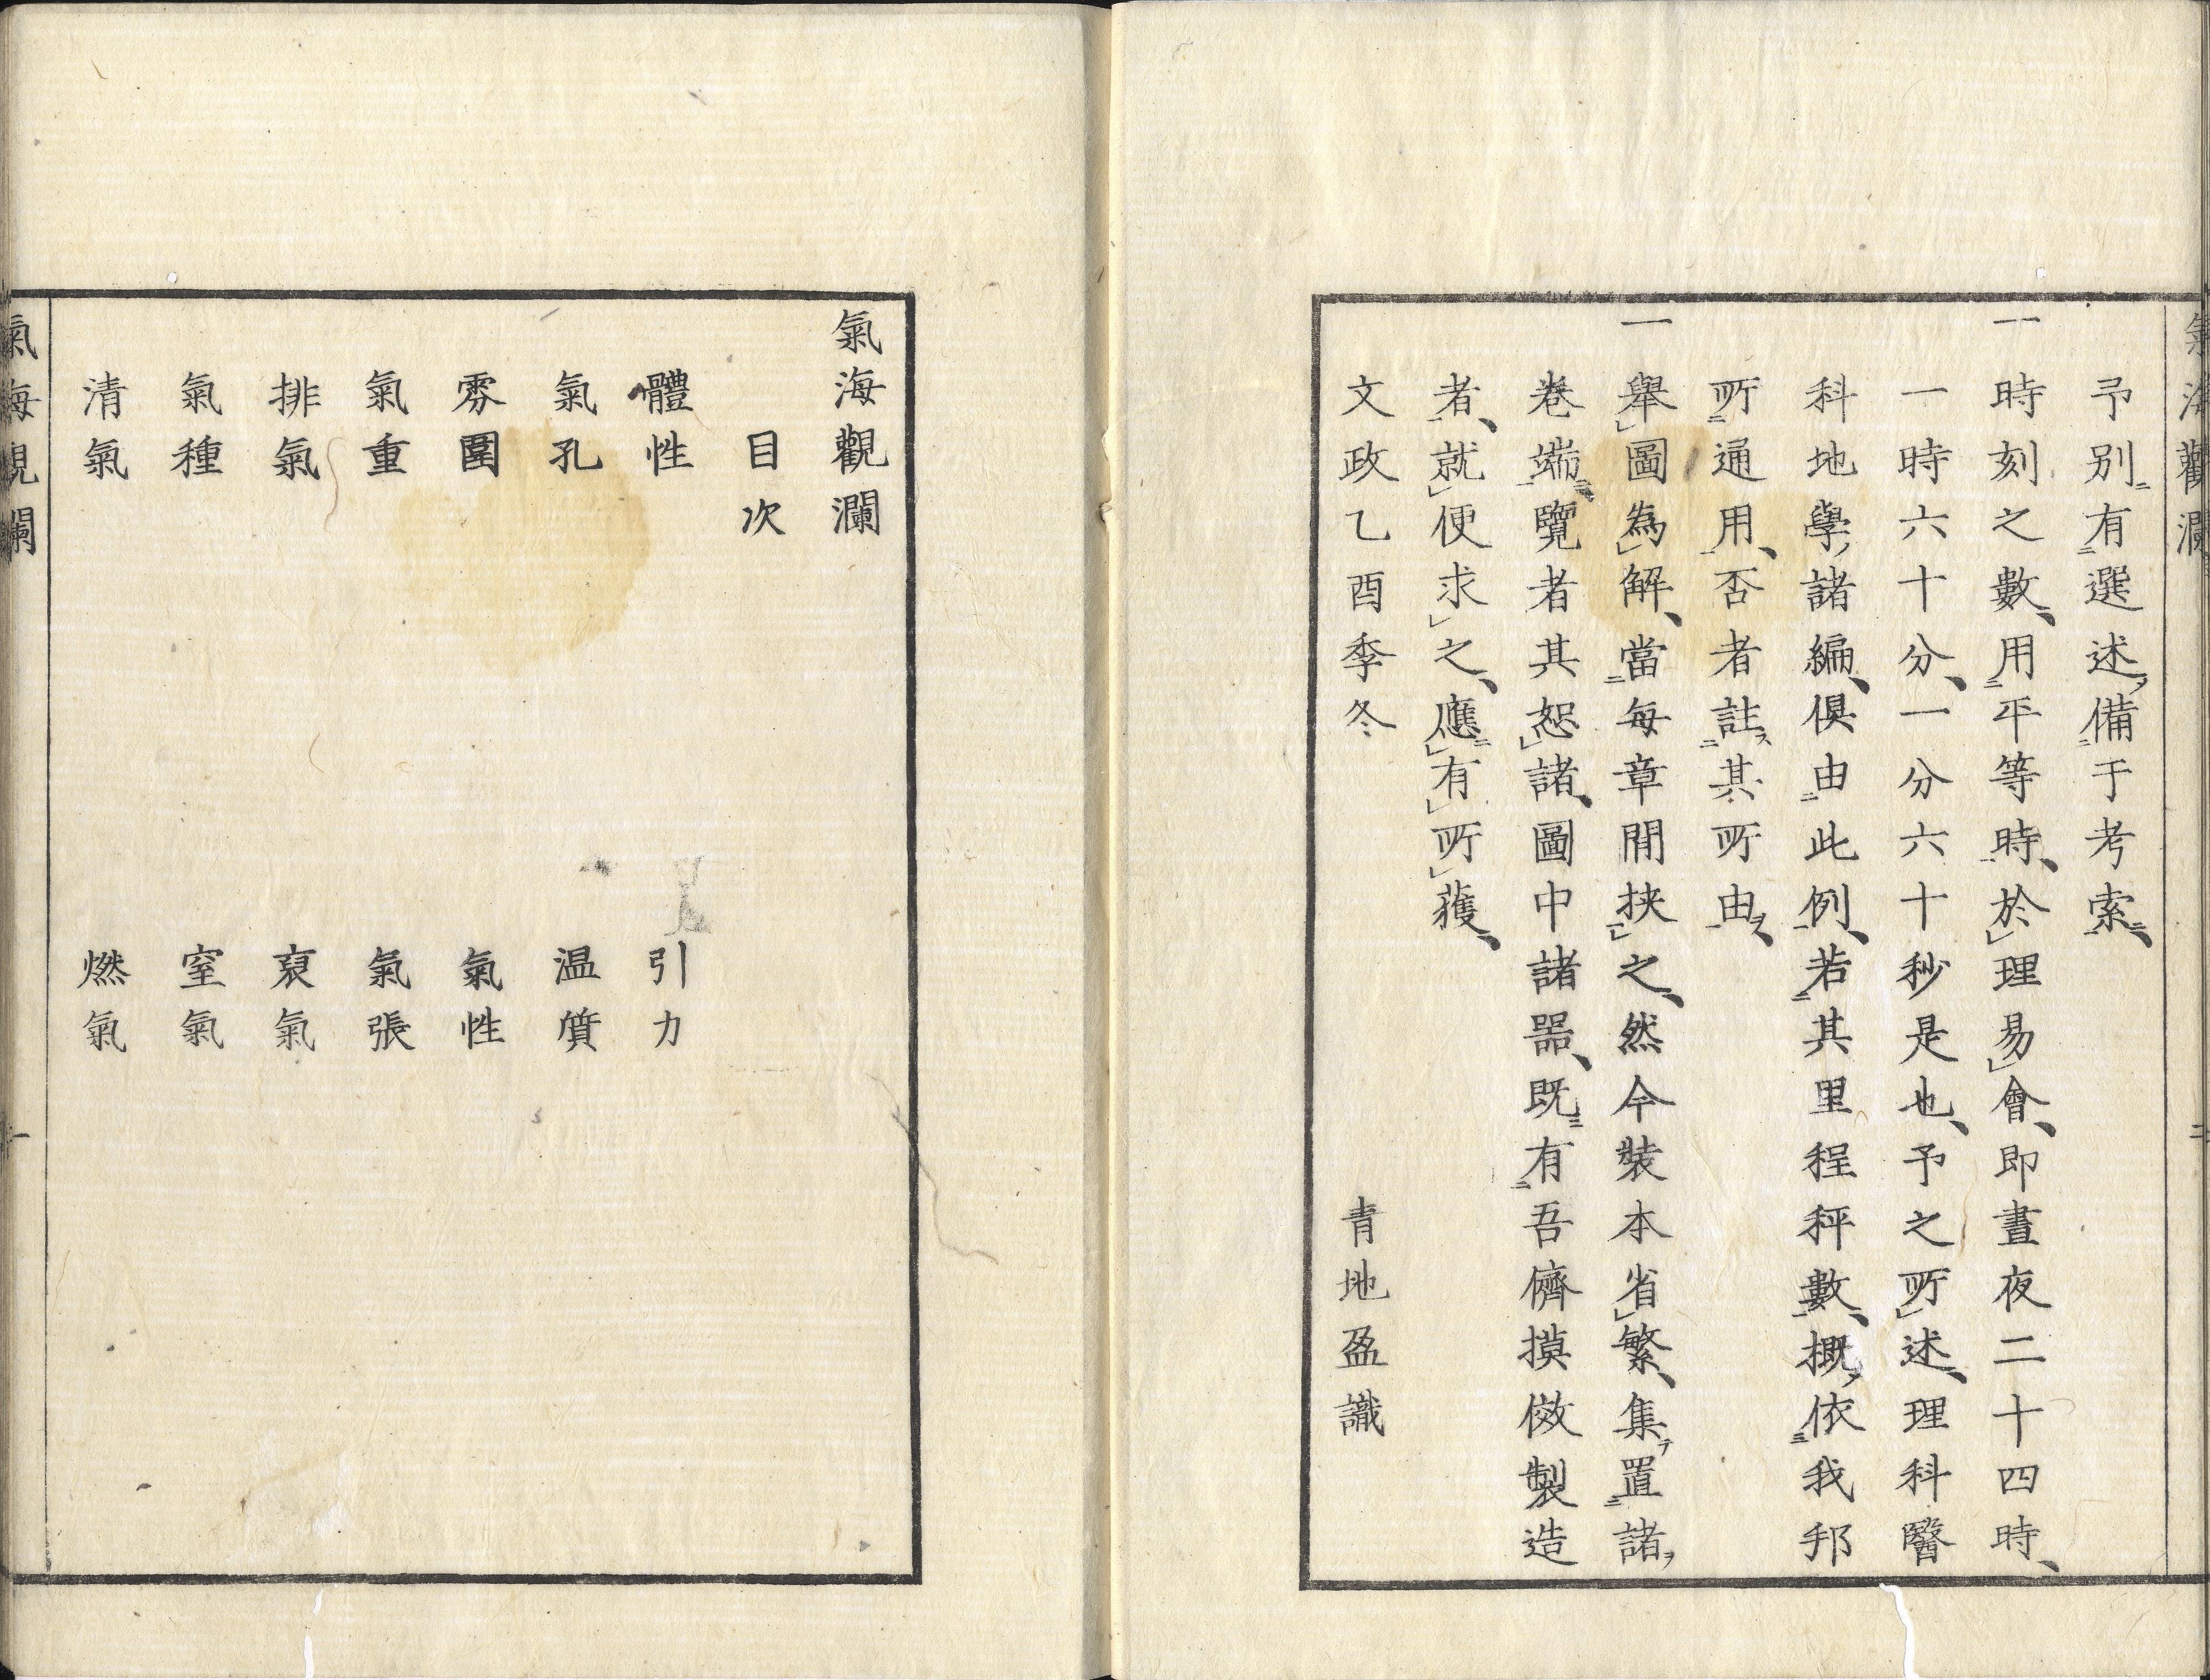 氣海觀瀾
二
予别有選述備于考索
一時刻之數、用平等時、於理易會、即晝夜二十四時、
一時六十分、一分六十秒是也、予之所述、理科醫
科地學諸編、俱由此例、若其里程秤數、概依我邦
所通用、否者註其所由、
一舉圖為解、當每章間挾之、然今裝本省繁、集置諸
卷端、覽者其恕諸、圖中諸器、既有吾儕摸倣製造
者、就便求之、應有所獲、
文政乙酉季冬
青地盈識
氣海觀瀾
目次
體性 引力
氣孔 温質
雰圍 氣性
氣重 氣張
排氣 裒氣
氣種 窒氣
清氣 燃氣
氣海觀瀾
一